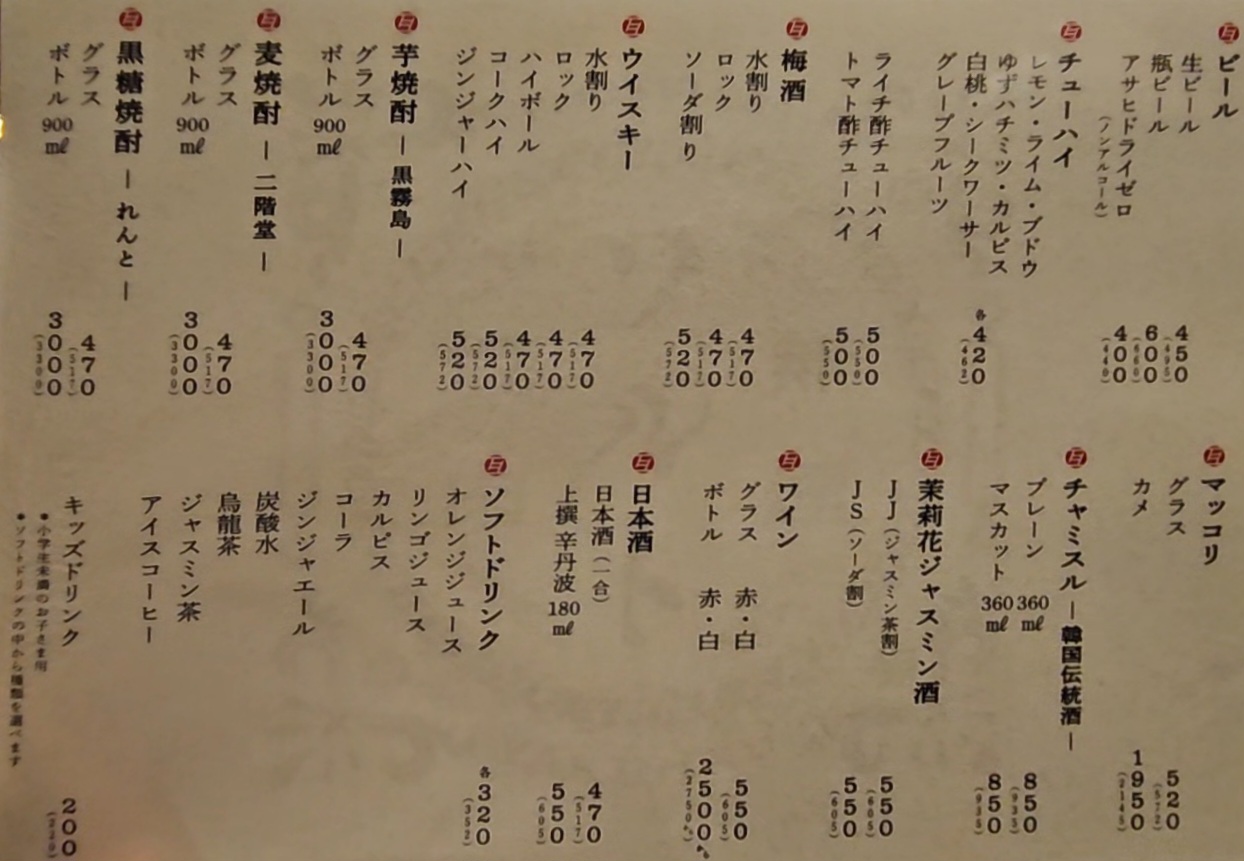 ビール
生ビール 450 (495)
瓶ビール 600 (660)
アサヒドライゼロ 400 (440)
(ノンアルコール)
チューハイ
レモン・ライム・ブドウ
ゆずハチミツ・カルピス
白桃・シークワーサー 各420 (462)
グレープフルーツ
ライチ酢チューハイ 500 (550)
トマト酢チューハイ 500 (550)
梅酒
水割り 470 (517)
ロック 470 (517)
ソーダ割り 520 (572)
ウイスキー
水割り 470 (517)
ロック 470 (517)
ハイボール 470 (517)
コークハイ 520 (572)
ジンジャーハイ 520 (572)
芋焼酎 ー 黒霧島 ー
グラス 470 (517)
ボトル 900㎖ 3000 (3300)
麦焼酎 ー 二階堂 ー
グラス 470 (517)
ボトル 900㎖ 3000 (3300)
黒糖焼酎 ー れんと ー
グラス 470 (517)
ボトル 900㎖ 3000 (3300)
マッコリ
グラス 520 (572)
カメ 1950 (2145)
チャミスル ー 韓国伝統酒 ー
プレーン 360㎖ 850 (935)
マスカット 360㎖ 850 (935)
茉莉花ジャスミン酒
JJ (ジャスミン茶割) 550 (605)
JS (ソーダ割) 550 (605)
ワイン
グラス 赤・白 550 (605)
ボトル 赤・白 2500 (2750)
日本酒
日本酒 (一合) 470 (517)
上撰 辛丹波 180㎖ 550 (605)
ソフトドリンク 各320 (352)
オレンジジュース
リンゴジュース
カルピス
コーラ
ジンジャエール
炭酸水
烏龍茶
ジャスミン茶
アイスコーヒー
キッズドリンク 200 (220)
●小学生未満のお子さま用
●ソフトドリンクの中から種類を選べます